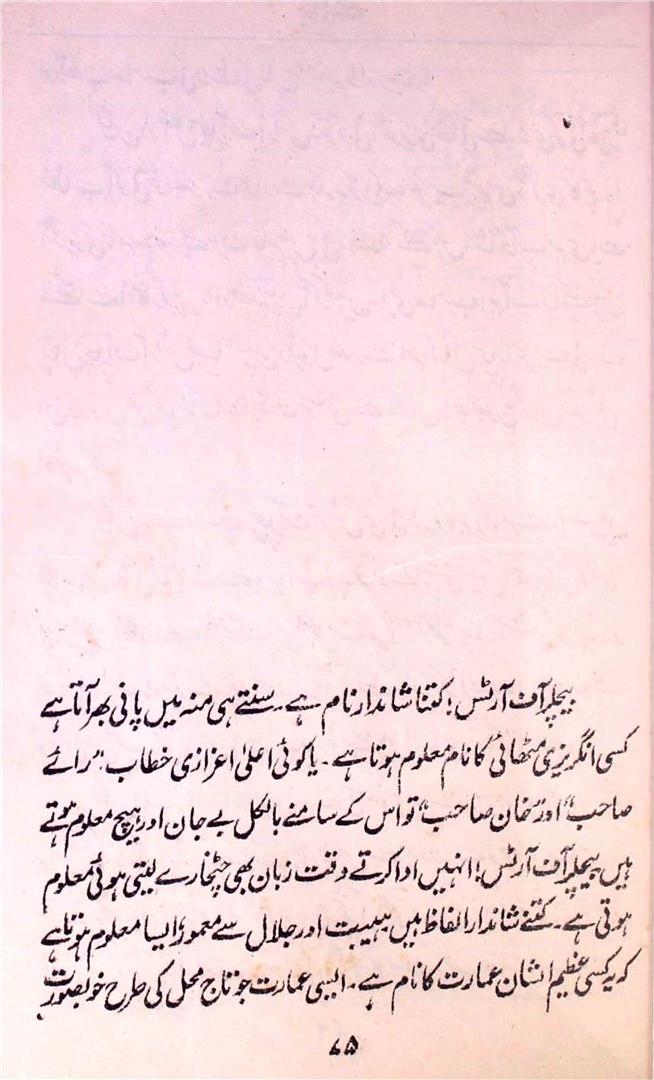 بیچلر آف آرٹس! کتنا شاندار نام ہے۔ سنتے ہی منہ میں پانی بھر آتا ہے
کسی انگریزی مٹھائی کا نام معلوم ہوتا ہے۔ یا کوئی اعلیٰ اعزازی خطاب۔ "رائے
صاحب" اور "خان صاحب" تو اس کے سامنے بالکل بے جان اور ہیچ معلوم ہوتے
ہیں بیچلر آف آرٹس! انہیں ادا کرتے وقت زبان بھی چٹخارے لیتی ہوئی معلوم
ہوتی ہے۔ کتنے شاندار الفاظ ہیں ہیبت اور جلال سے معمور، ایسا معلوم ہوتا ہے
کہ یہ کسی عظیم الشان عمارت کا نام ہے۔ ایسی عمارت جو تاج محل کی طرح خوبصورت
۸۵